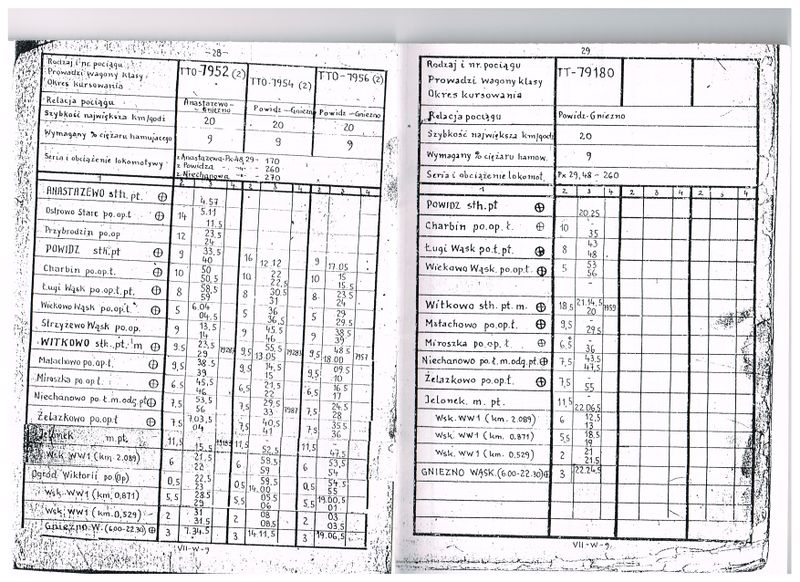 -28-
Rodzaj i nr. pociągu
Prowadzi wagony klasy
Okres kursowania
TTO-7952 (2)
TTO-7954 (2)
TTO-7956 (2)
Relacja pociągu
Anastazewo-Gniezno
Powidz-Gniezno
Powidz-Gniezno
Szybkość największa km/godz 20 20 20
Wymagany % ciężaru hamującego 9 9 9
Seria i obciążenie lokomotywy
z Anastazewa-Px48,29- 170
z Powidza - 260
z Niechanowa - 270
1 2 3 4 2 3 4 2 3 4
ANASTAZEWO sth. pt. 4.57
Ostrowo Stare po.op.t 14 5.11 11.5
Przybrodzin po.op 12 23.5 24
POWIDZ sth.pt 9 33.5 40 16 12.12 9 17.05
Charbin po.op.t. 10 50 50.5 10 22 22.5 10 15 15.5
Ługi Wąsk po.op.t.pt. 8 58.5 59 8 30.5 31 8 23.5 24
Wiekowo Wąsk po.op.t. 5 6.04 04.5 5 36 36.5 5 29 29.5
Strzyżewo Wąsk po.op. 9 13.5 14 9 45.5 46 9 38.5 39
WITKOWO sth.pt. m 9.5 23.5 29 9.5 55.5 13.05 9.5 48.5 18.00 7957
Małachowo po.op.t. 9.5 38.5 39 9.5 14.5 15 9.5 09.5 10
Miroszka po.op.t. 6.5 45.5 46 6.5 21.5 22 6.5 16.5 17
Niechanowo po.t.m.odg.pt 7.5 53.5 56 7.5 29.5 33 7.5 24.5 28
Żelazkowo po.op.t 7.5 7.03.5 04 7.5 40.5 41 7.5 35.5 36
Jelonek m.pt. 11.5 15.5 11.5 52.5 11.5 47.5
Wsk WW1 (km 2.089) 6 21.5 22 6 58.5 59 6 53.5 54
Ogród Wiktorii po op 0.5 22.5 23 0.5 59.5 14.00 0.5 54.5 55
Wsk. WW1 (km 0,871) 5.5 28.5 29 5.5 05.5 06 5.5 19.00.5 01
Wsk. WW1 (km 0,529) 2 31 31.5 2 08 08.5 2 03 03.5
GNIEZNO W. (6.00-22.30) 3 7.34.5 3 14.11.5 3 19.06.5
VII-W-9.
29
Rodzaj i nr. pociągu
Prowadzi wagony klasy
Okres kursowania
TT-79180
Relacja pociągu Powidz-Gniezno
Szybkość największa km/godz 20
Wymagany % ciężaru hamow. 9
Seria i obciążenie lokomot. Px 29,48 - 260
1 2 3 4 2 3 4 2 3 4
POWIDZ sth.pt 20.25
Charbin po.op.t. 10 - 35
Ługi Wąsk po.t.pt. 8 43 48
Wiekowo Wąsk. po.op.t. 5 53 56
Witkowo sth. pt. m. 18.5 21.14.5 20 7959
Małachowo po.op.t. 9.5 - 29.5
Miroszka po.op.t. 6.5 - 36
Niechanowo po.t.m.odg.pt. 7.5 43.5 47.5
Żelazkowo po.op.t. 7.5 - 55
Jelonek. m. pt. 11.5 22.06.5
Wsk. WW1 (km. 2.089) 6 12.5 13
Wsk. WW1 (km. 0.871) 5.5 18.5 19
Wsk. WW1 (km. 0.529) 2 21 21.5
GNIEZNO WĄSK.(6.00-22.30) 3 22.24.5
VII-W-9.